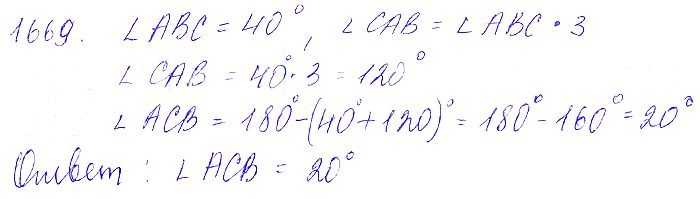 1669. ∠ABC = 40°, ∠CAB = ∠ABC · 3
∠CAB = 40°· 3 = 120°
∠ACB = 180°-(40°+120)° = 180° - 160° = 20°
Ответ : ∠ACB = 20°